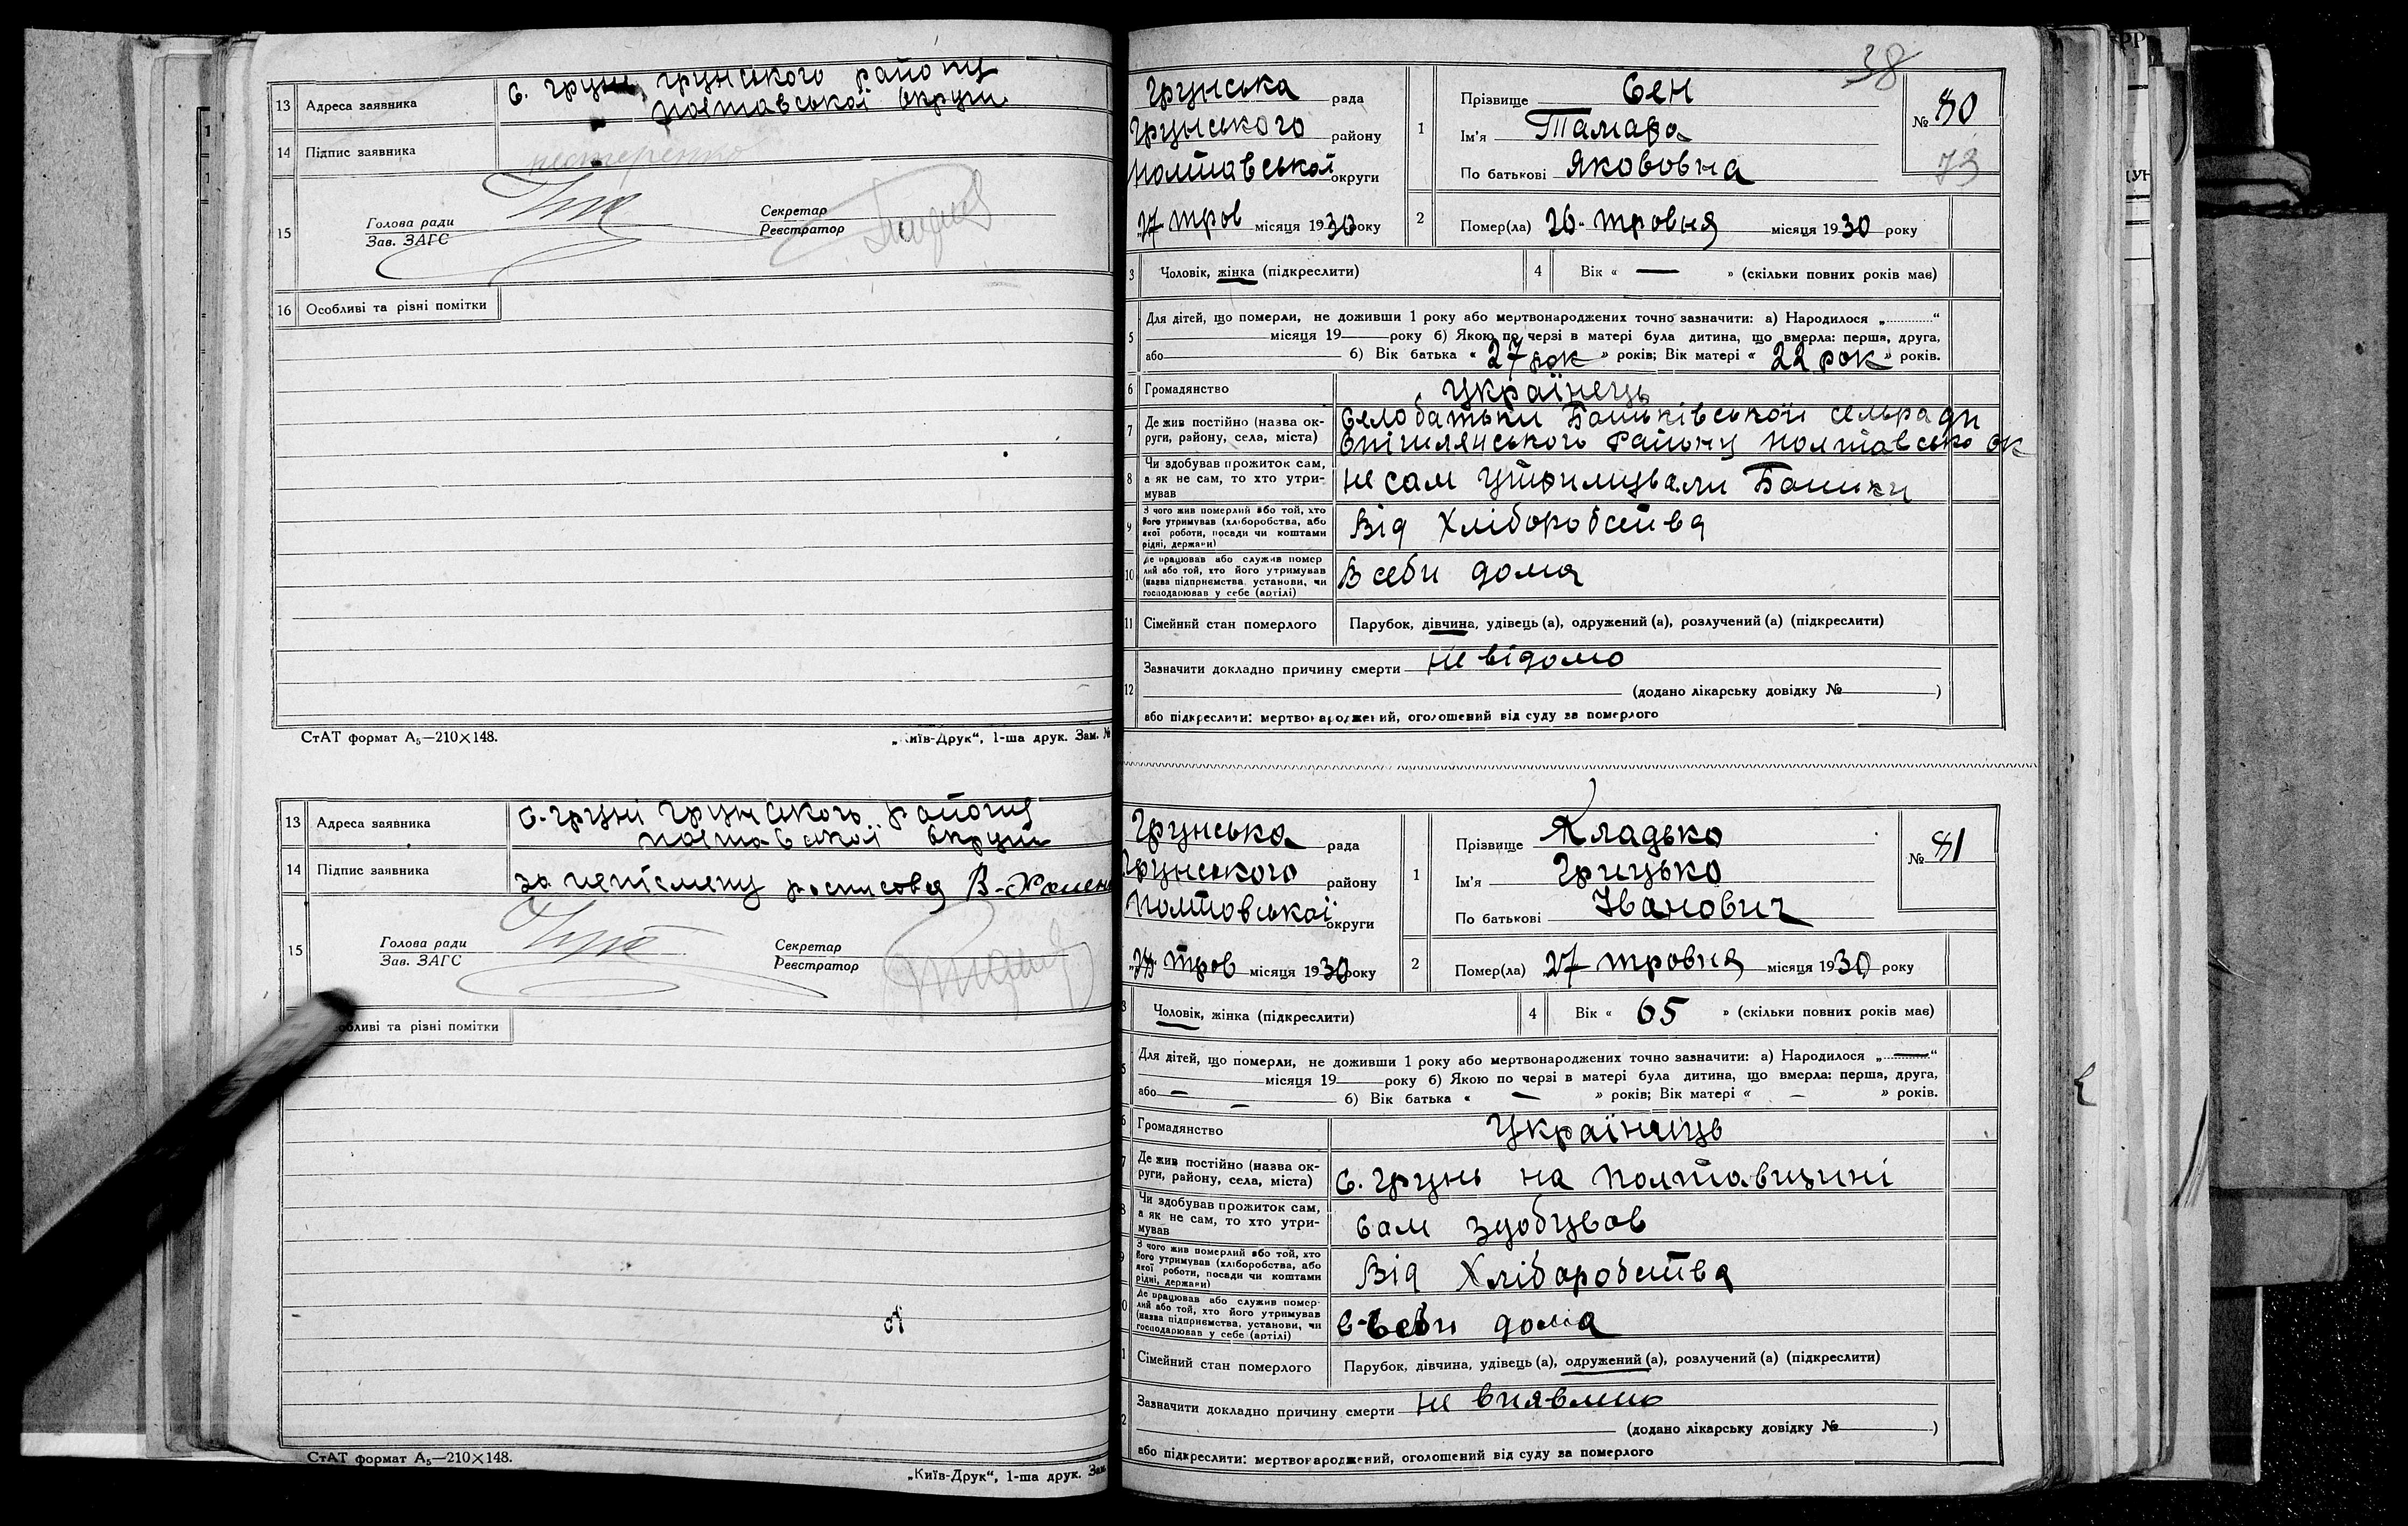 13 Адреса заявника с. Грунь, Грунського району
Полтавської Округи
14 Підпис заявника Нестеренко
15 Голова ради
Зав. ЗАГС
Секретар
Реєстратор
16 Особливі та різні помітки
СтАТ формат А₅—210×148.
„Київ-Друк“, 1-ша друк. Зам. №
13 Адреса заявника с. Груні Грунського району
Полтавської Округи
14 Підпис заявника за неписмену росписовя В-
15 Голова ради
Зав. ЗАГС
Секретар
Реєстратор
Особливі та різні помітки
СтАТ формат А₅—210×148.
„Київ-Друк“, 1-ша друк. Зам.
38
Грунська рада
Грунського району
Полтавської округи
27 трав місяця 1930 року
1 Прізвище Сен
Ім'я Тамара
По батькові Якововна
№ 80
73
2 Помер(ла) 26 тровня місяця 1930 року
3 Чоловік, жінка (підкреслити)
4 Вік « — » (скільки повних років має)
5 Для дітей, що померли, не доживши 1 року або мертвонароджених точно зазначити: а) Народилося „............“
місяця 19 року б) Якою по черзі в матері була дитина, що вмерла: перша, друга,
або б) Вік батька « 27 рок » років; Вік матері « 22 рок » років.
6 Громадянство Українець
7 Де жив постійно (назва ок-
руги, району, села, міста) Село Батьки Батьківської сельради
Опішлянського Району Полтавсько Ок
8 Чи здобував прожиток сам,
а як не сам, то хто утри-
мував не сам утримували Батьки
9 З чого жив померлий або той, хто
його утримував (хліборобства, або
якої роботи, посади чи коштами
рідні, держави) Від Хліборобства
10 Де працював або служив помер
лий або той, хто його утримував
(назва підприємства, установи, чи
господарював у себе (артілі) В себи дома
11 Сімейний стан померлого Парубок, дівчина, удівець (а), одружений (а), розлучений (а) (підкреслити)
12 Зазначити докладно причину смерти не відомо
(додано лікарську довідку № )
або підкреслити: мертвонароджений, оголошений від суду за померлого
Грунська рада
Грунського району
Полтовської округи
27 тров місяця 1930 року
1 Прізвище Кладько
Ім'я Грицько
По батькові Іванович
№ 81
2 Помер(ла) 27 тровня місяця 1930 року
3 Чоловік, жінка (підкреслити)
4 Вік « 65 » (скільки повних років має)
5 Для дітей, що померли, не доживши 1 року або мертвонароджених точно зазначити: а) Народилося „—“
місяця 19 року б) Якою по черзі в матері була дитина, що вмерла: перша, друга,
або — б) Вік батька « — » років; Вік матері « — » років.
6 Громадянство Українець
7 Де жив постійно (назва ок-
руги, району, села, міста) с. Грунь на Полтавщині
8 Чи здобував прожиток сам,
а як не сам, то хто утри-
мував сам здобував
9 З чого жив померлий або той, хто
його утримував (хліборобства, або
якої роботи, посади чи коштами
рідні, держави) Від Хліборобства
10 Де працював або служив помер-
лий або той, хто його утримував
(назва підприємства, установи, чи
господарював у себе (артілі) в себи дома
11 Сімейний стан померлого Парубок, дівчина, удівець (а), одружений (а), розлучений (а) (підкреслити)
12 Зазначити докладно причину смерти не виявлено
(додано лікарську довідку № )
або підкреслити: мертвонароджений, оголошений від суду за померлого